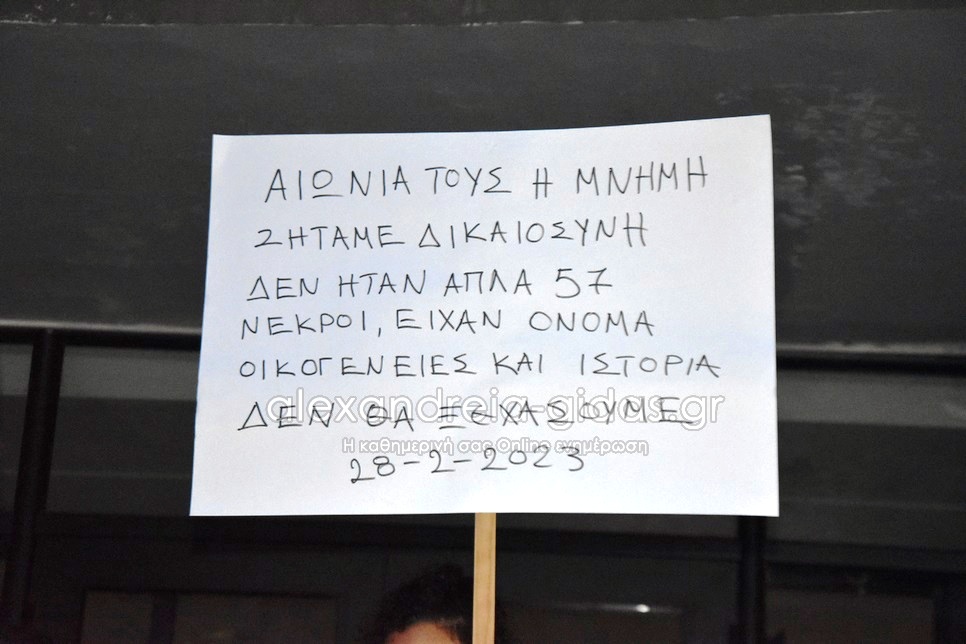 ΑΙΩΝΙΑ ΤΟΥΣ Η ΜΝΗΜΗ
ΖΗΤΑΜΕ ΔΙΚΑΙΟΣΥΝΗ
ΔΕΝ ΗΤΑΝ ΑΠΛΑ 57
ΝΕΚΡΟΙ, ΕΙΧΑΝ ΟΝΟΜΑ
ΟΙΚΟΓΕΝΕΙΕΣ ΚΑΙ ΙΣΤΟΡΙΑ
alexandreia-gidas.gr
ΔΕΝ ΘΑ ΞΕΧΑΣΟΥΜΕ
Η καθημερινή σας Online ενημέρωση
28-2-2023